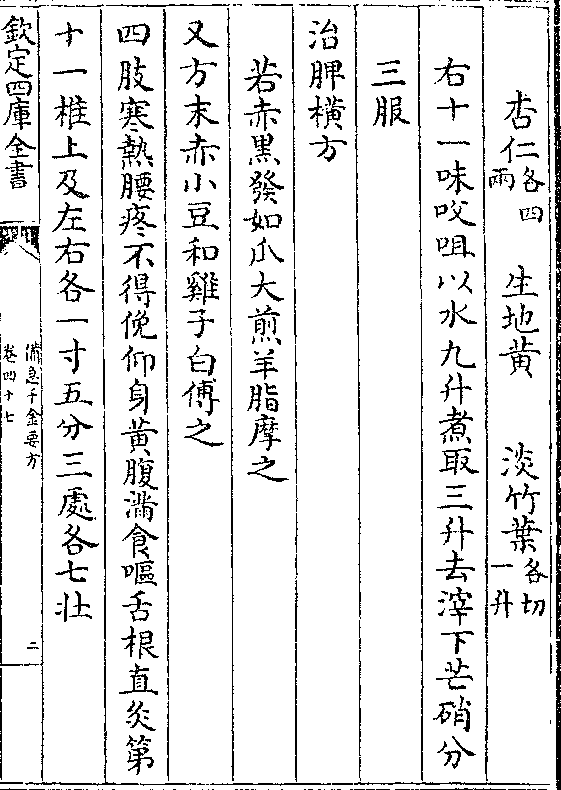 杏仁各四兩　生地黄　淡竹葉各切一升
右十一味㕮咀以水九升煮取三升去滓下芒硝分
三服
治脾横方
若赤黒發如爪大煎羊脂摩之
又方末赤小豆和雞子白傅之
四肢寒熱腰疼不得俛仰身黄腹滿食嘔舌根直灸第
十一椎上及左右各一寸五分三處各七壯
欽定四庫全書
備急千金要方
卷四十七
二